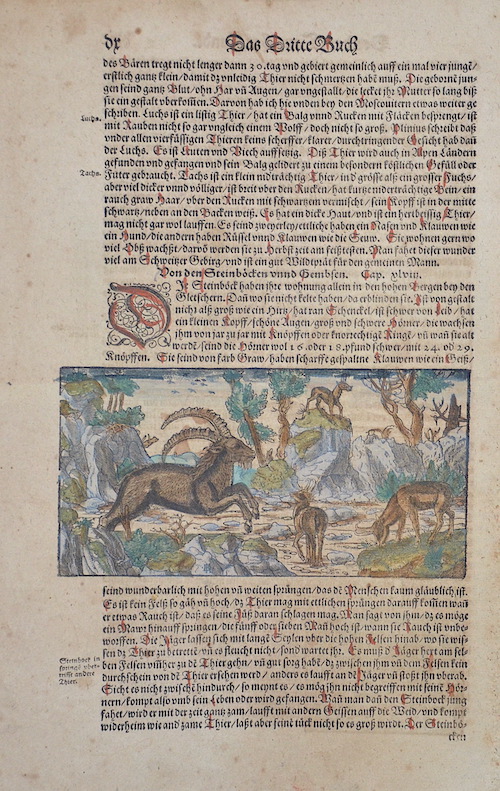 dx Das Dritte Buch
des Bären tregt nicht lenger dann 30. tag vnd gebiert gemeinlich auff ein mal vier jungē/
erstlich gantz klein/ damit dz vnleidig Thier nicht schmertzen habē muß. Die gebornē jun-
gen seind gantz Blut/ ohn Har vñ Augen/ gar vngestalt/ die lecket jhr Mutter so lang biß
sie ein gestalt vberkom̄en. Darvon hab ich hie vnden bey den Moscouitern etwas weiter ge
schriben. Luchs ist ein listig Thier/ hat ein Balg vnnd Rucken mit Fläcken besprengt/ ist
Luchs.
mit Rauben nicht so gar vngleich einem Wolff/ doch nicht so groß. Plinius schreibt daß
vnder allen vierfüssigen Thieren keins scherffer/ klarer/ durchtringender Gesicht hab dañ
der Luchs. Es ist Leuten vnd Viech auffsetzig. Diß Thier wird auch in Alpen Ländern
gefunden vnd gefangen vnd sein Balg gelidert zu einem besondern köstlichen Gefüll oder
Tachs.
Füter gebraucht. Tachs ist ein klein nidträchtig Thier/ in der grösse als ein grosser Fuchs/
aber viel dicker vnnd völliger/ ist breit vber den Rucken/ hat kurtze niderträchtige Bein/ ein
rauch graw Haar/ vber den Rucken mit schwartzem vermischt/ sein Kopff ist in der mitte
schwartz/ neben an den Backen weiß. Es hat ein dicke Haut/ vnd ist ein herbbeissig Thier/
mag nicht gar wol lauffen. Es seind zweyerley/ ettliche haben ein Nasen vnd Klauwen wie
ein Hund/ die andern haben Rüssel vnnd Klauwen wie die Seuw. Sie wohnen gern wo
viel Obß wachßt/ darvō werden sie zu Herbst zeit am feißtesten. Man fahet dieser wunder
viel am Schweitzer Gebirg/ vnd ist ein gut Wildprät für den gemeinen Mann.
Von den Steinböcken vnnd Gembsen. Cap. xlviij.
DJe Steinböck haben jhre wohnung allein in den hohen Bergen bey den
Gletschern. Dañ wo sie nicht kelte haben/ da erblinden sie. Ist von gestalt
nicht als groß wie ein Hirtz/ hat ran Schenckel/ ist schwer von Leib/ hat
ein kleinen Kopff/ schöne Augen/ groß vnd schwere Hörner/ die wachsen
jhm von jar zu jar mit Knöpffen oder knorrechtigē Ringē/ vñ wañ sie alt
werdē/ seind die Hörner wol 16. oder 18. pfund schwer/ mit 24. od 29.
Knöpffen. Sie seind von farb Graw/ haben scharffe gespaltne Klauwen wie ein Geiß/
seind wunderbarlich mit hohen vñ weiten sprüngen/ das dē Menschen kaum gläublich ist.
Es ist kein Felß so gäh vñ hoch/ dz Thier mag mit ettlichen sprüngen darauff kom̄en wañ
er etwas Rauch ist/ daß es seine Füß daran schlagen mag. Man sagt von jhm/ dz es möge
ein Mawr hinauff springen/ die fünff oder sieben Mañ hoch ist/ wann sie Rauch ist vnbe
worffen. Die Jäger lassen sich mit langē Seylen vber die hohen Felsen hinab/ wo sie wis-
sen dz Thier zu betrettē/ vñ es fleucht nicht/ sond wartet jhr. Es muß d Jäger hart am sel-
ben Felsen vmbher zu dē Thier gehn/ vñ gut sorg habē/ dz zwischen jhm vñ dem Felsen kein
Steinbock in
sprungē vber-
trifft andere
Thier.
durchschein von dē Thier ersehen werd/ anders es laufft an dē Jäger vñ stoßt jhn vberab.
Sicht es nicht zwischē hindurch/ so meynt es/ es mög jhn nicht begreiffen mit seinē Hör-
nern/ kompt also vmb sein Leben oder wird gefangen. Wañ man dañ den Steinbock jung
fahet/ wird er mit der zeit gantz zam/ laufft mit andern Geissen auff die Weid/ vnd kompt
widerheim wie and zame Thier/ laßt aber seine tück nicht so es groß wirdt. Der Steinbö-
cken